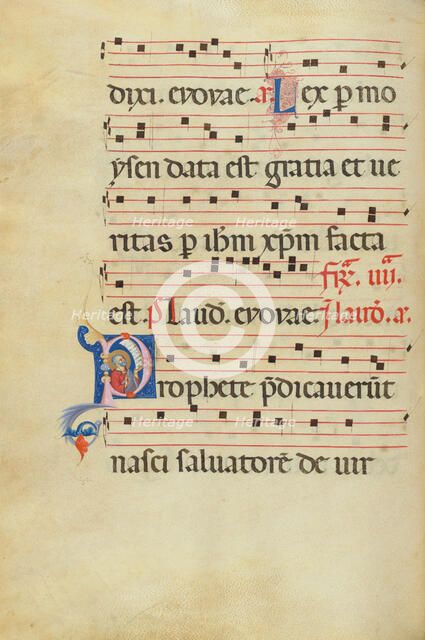 dixi. evovae. a. Lex p mo
ysen data est gratia et ve
ritas p ihm xpm facta
fr. iiii.
est. ps Laud. evovae. J laud. a.
Prophete pdicaverūt
nasci salvatorē de vir
Heritage
Heritage
Heritage
Heritage
Heritage
Heritage